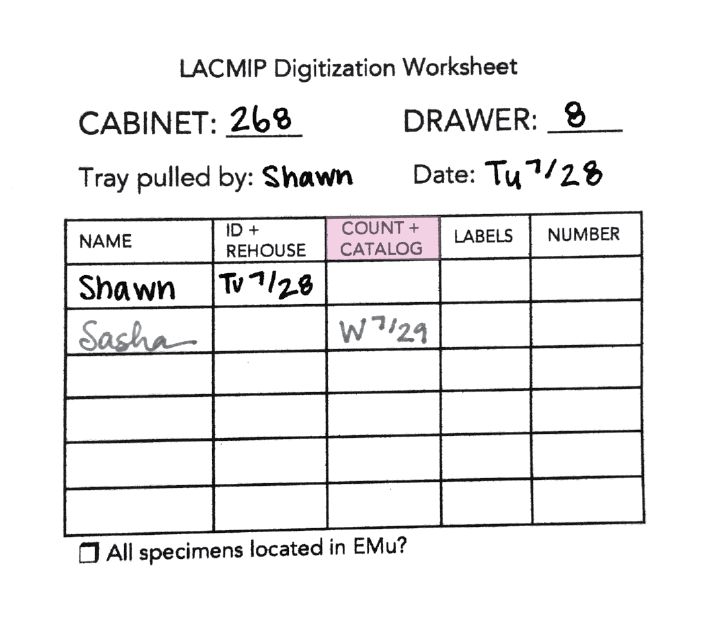 LACMIP Digitization Worksheet
CABINET: 268 DRAWER: 8
Tray pulled by: Shawn Date: Tu 7/28
NAME ID + REHOUSE COUNT + CATALOG LABELS NUMBER
Shawn Tu 7/28
Sasha W 7/29
All specimens located in EMu?